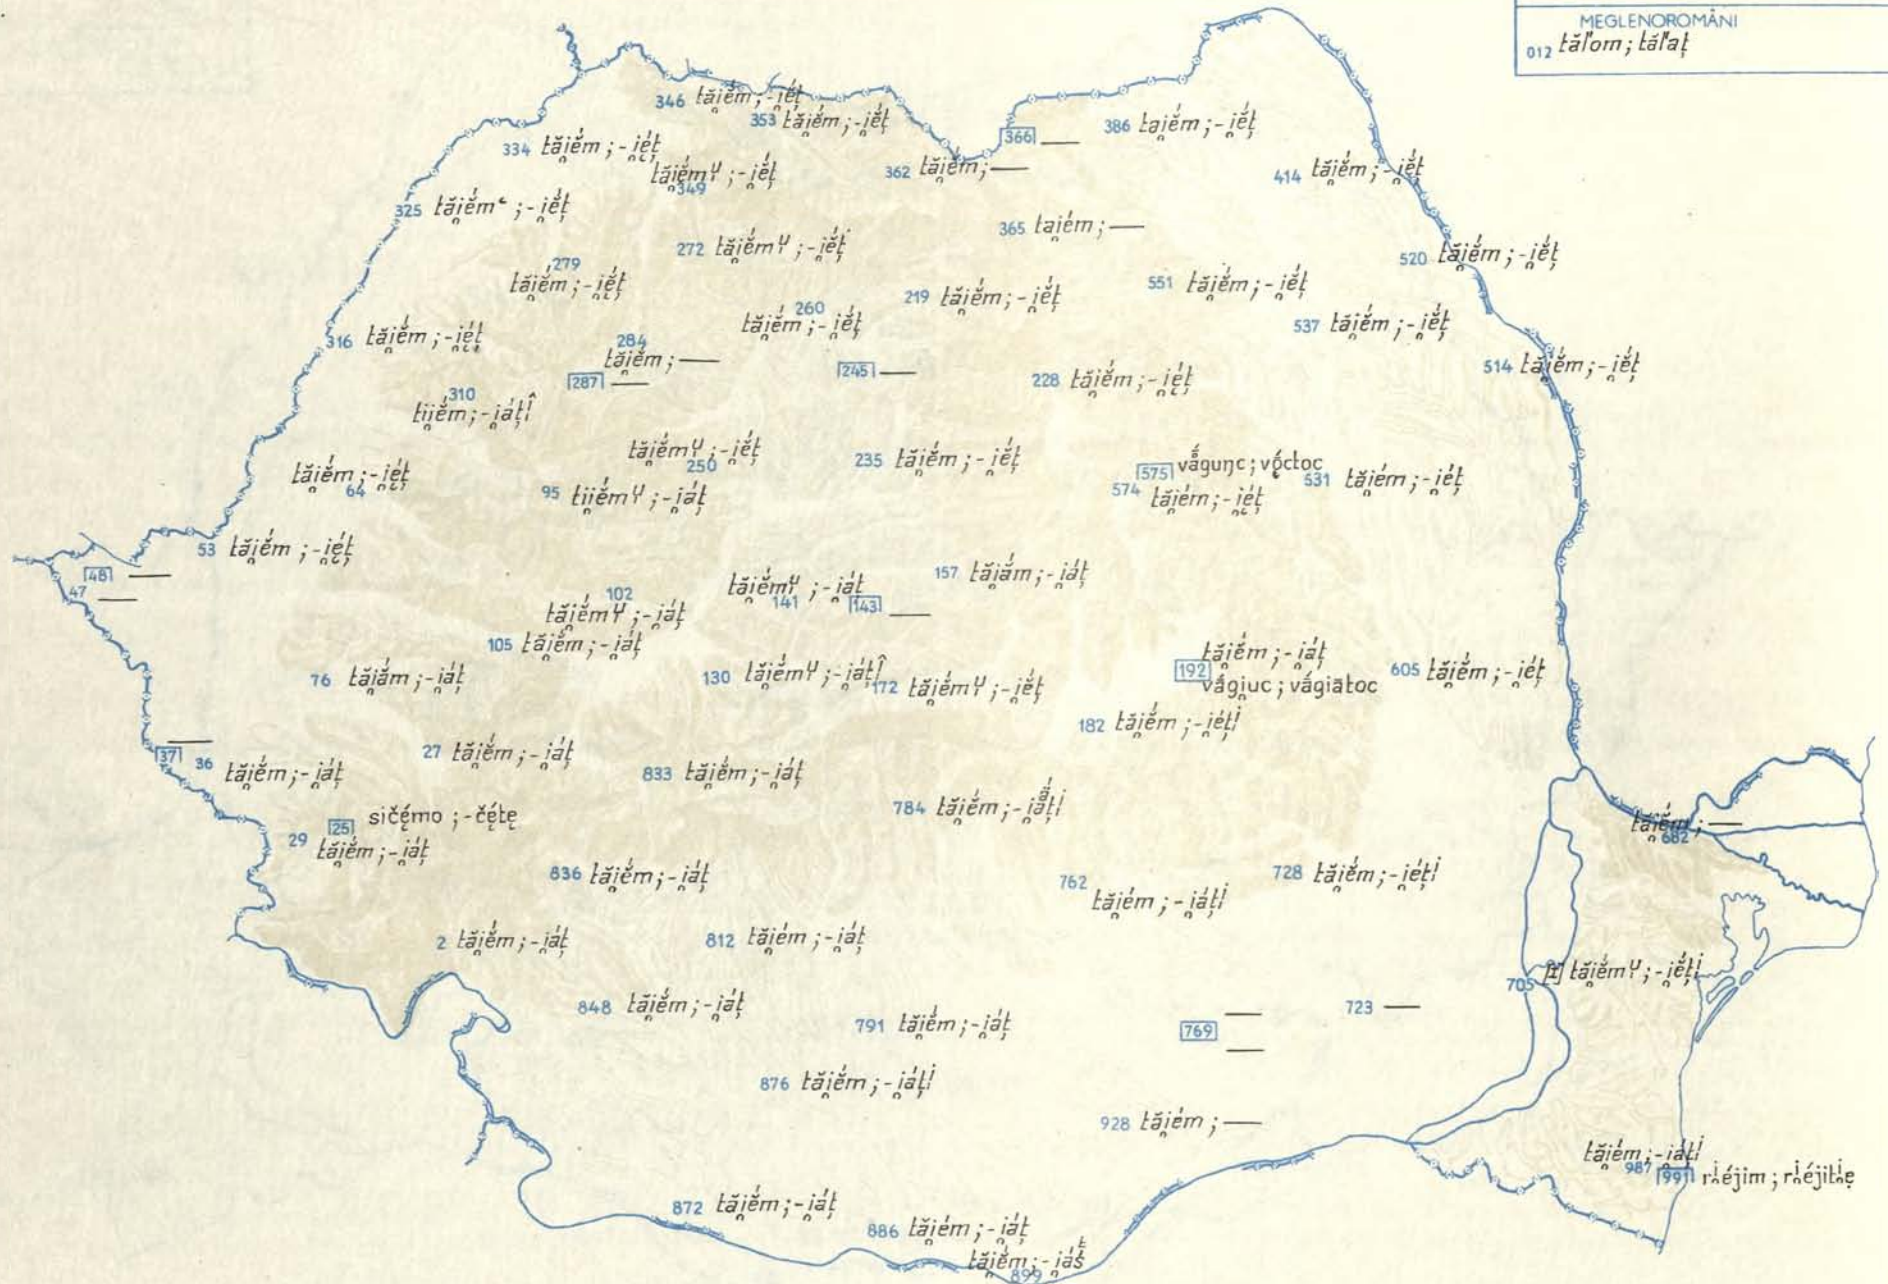 MEGLENOROMÂNI
012 tăl'om; tăl'aț
346 tăi̯ém; -i̯éț
353 tăi̯ém; -i̯éț
366 —
386 tai̯ém; -i̯éț
334 tăi̯ém; -i̯éț
349 tăi̯émY; -i̯éț
362 tăi̯ém; —
414 tăi̯ém; -i̯éț
325 tăi̯ém; -i̯éț
365 tai̯ém; —
272 tăi̯émY; -i̯éț
520 tăi̯ém; -i̯éț
279 tăi̯ém; -i̯éț
551 tăi̯ém; -i̯éț
219 tăi̯ém; -i̯éț
260 tăi̯ém; -i̯éț
537 tăi̯ém; -i̯éț
316 tăi̯ém; -i̯éț
284 tăi̯ém; —
287 —
245 —
228 tăi̯ém; -i̯éț
514 tăi̯ém; -i̯éț
310 tii̯ém; -i̯áțî
250 tăi̯émY; -i̯éț
235 tăi̯ém; -i̯éț
575 vắguŋc; vọ́ctoc
574 tăi̯ém; -i̯éț
531 tăi̯ém; -i̯éț
64 tăi̯ém; -i̯éț
95 tii̯émY; -i̯áț
53 tăi̯ém; -i̯éț
48 —
47 —
157 tăi̯ám; -i̯áț
141 tăi̯émY; -i̯áț
143 —
102 tăi̯émY; -i̯áț
105 tăi̯ém; -i̯áț
76 tăi̯ám; -i̯áț
130 tăi̯émY; -i̯áțî
172 tăi̯émY; -i̯éț
192 tăi̯ém; -i̯áț
vắgi̯uc; vắgiātoc
605 tăi̯ém; -i̯éț
182 tăi̯ém; -i̯éți
37 —
36 tăi̯ém; -i̯áț
27 tăi̯ém; -i̯áț
833 tăi̯ém; -i̯áț
784 tăi̯ém; -i̯áți
25 sičẹ́mo; -čẹ́tę
29 tăi̯ém; -i̯áț
682 tăi̯ém; —
836 tăi̯ém; -i̯áț
762 tăi̯ém; -i̯áți
728 tăi̯ém; -i̯éți
2 tăi̯ém; -i̯áț
812 tăi̯ém; -i̯áț
705 [I] tăi̯émY; -i̯éți
848 tăi̯ém; -i̯áț
791 tăi̯ém; -i̯áț
769 —
—
723 —
876 tăi̯ém; -i̯áți
928 tăi̯ém; —
987 tăi̯ém; -i̯áți
991 ri̯éjim; ri̯éjiti̯ę
872 tăi̯ém; -i̯áț
886 tăi̯ém; -i̯áț
899 tăi̯ém; -i̯áș